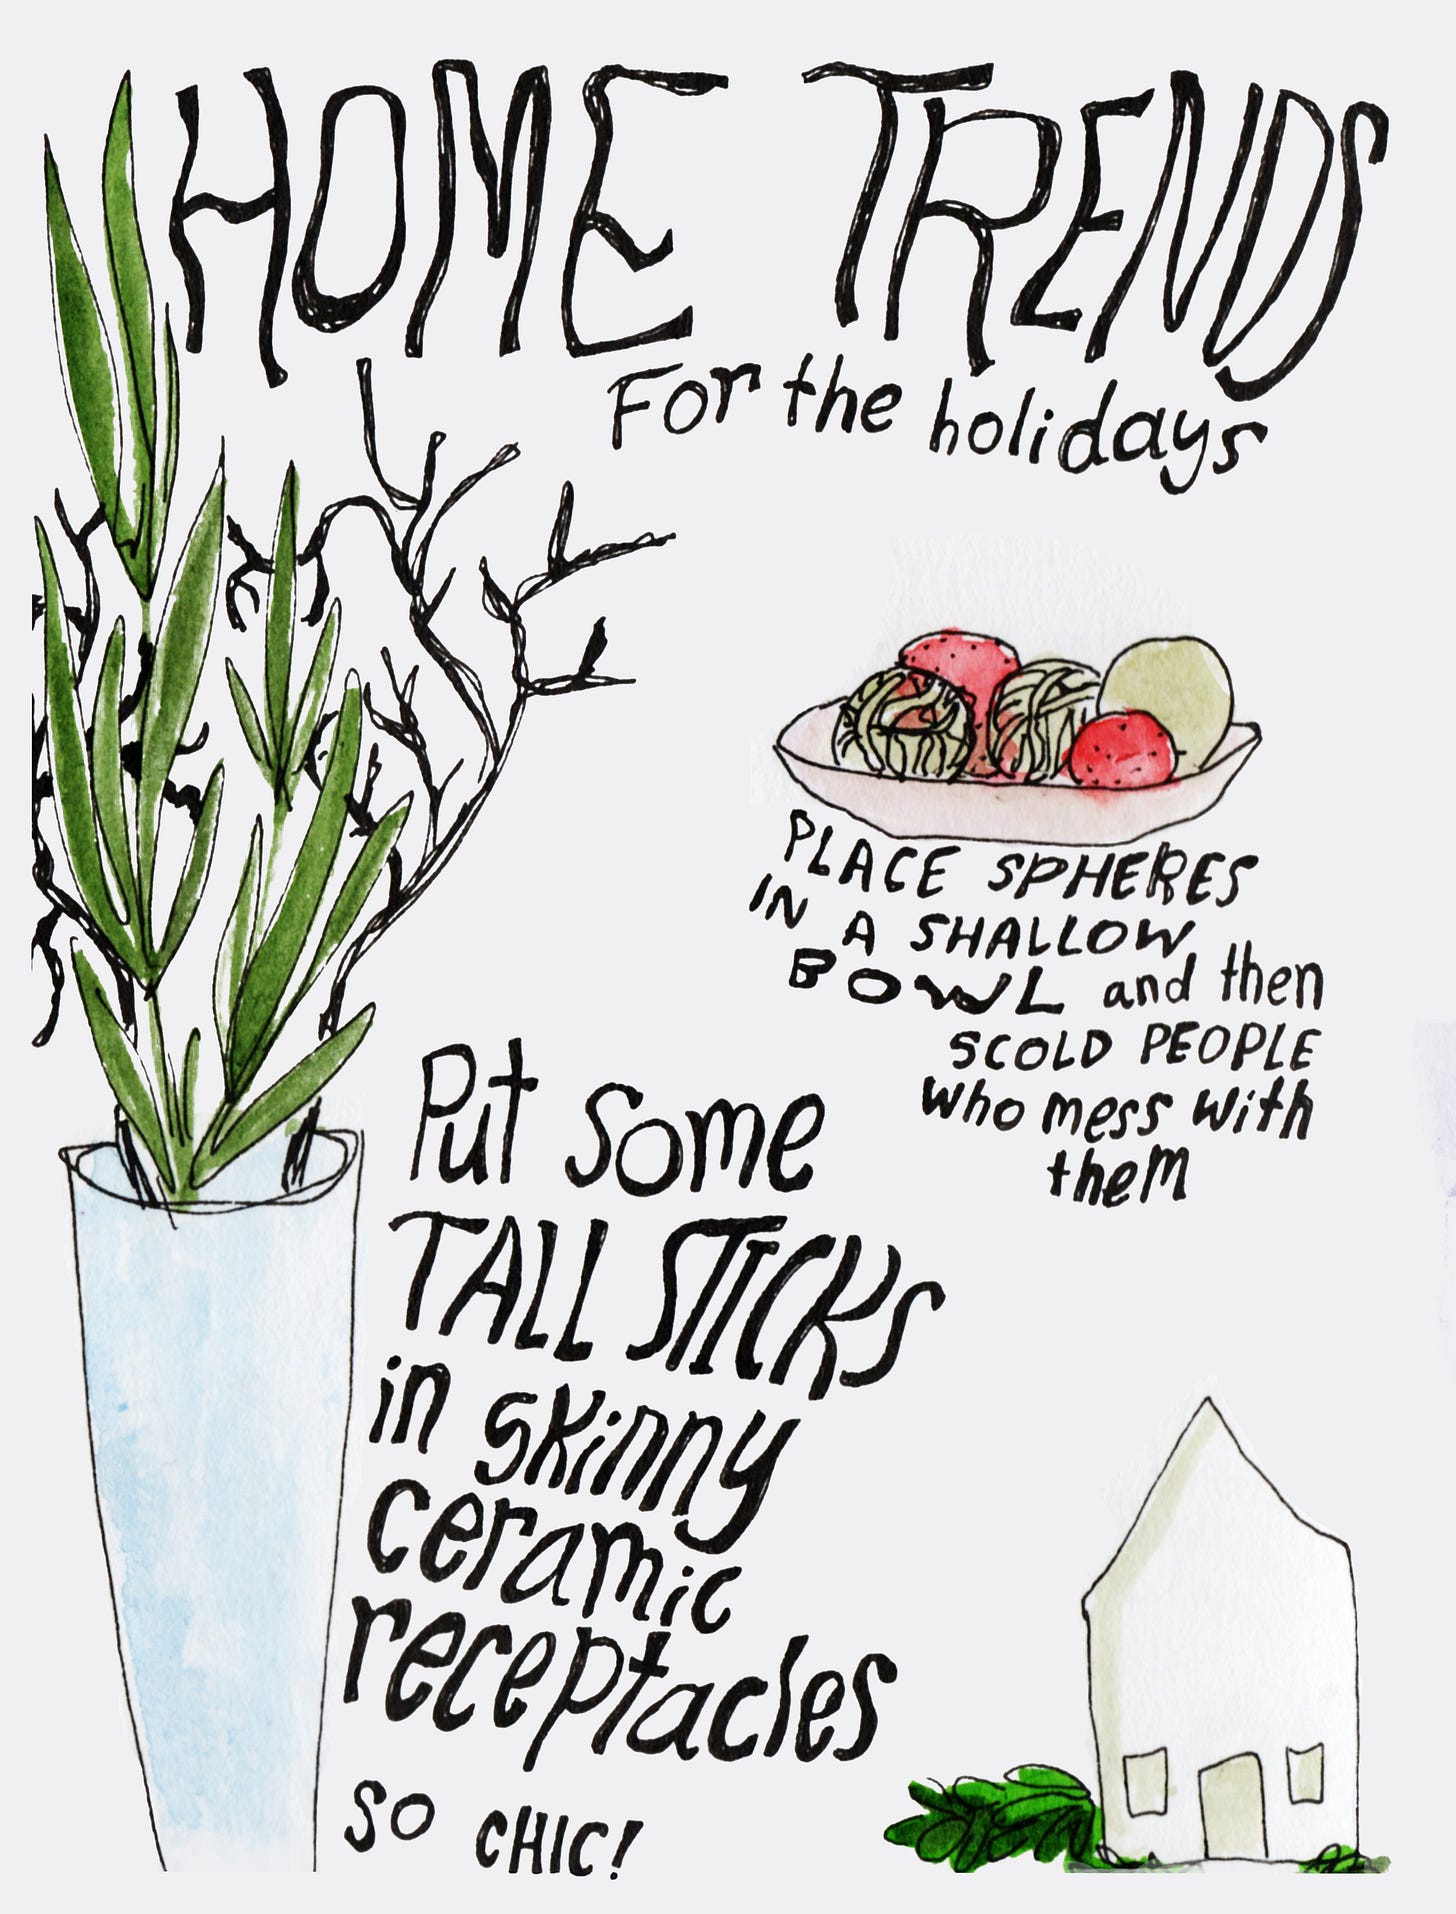 HOME TRENDS
For the holidays
PLACE SPHERES
IN A SHALLOW
BOWL and then
SCOLD PEOPLE
who mess with
them
Put some
TALL STICKS
in skinny
ceramic
receptacles
SO CHIC!